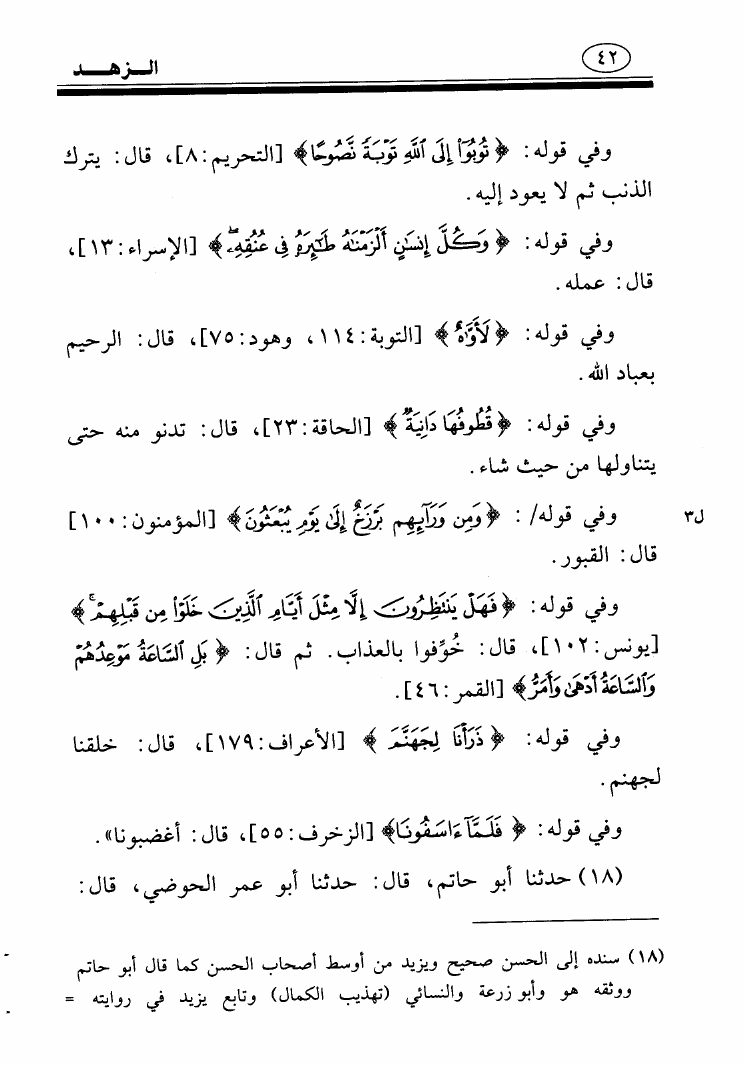 ٤٢
الـزهـــد
وفي قوله: ﴿ تُوبُوٓا۟ إِلَى ٱللَّهِ تَوْبَةً نَّصُوحًا﴾ [التحريم:٨]، قال: يترك
الذنب ثم لا يعود إليه.
وفي قوله: ﴿ وَكُلَّ إِنسَٰنٍ أَلْزَمْنَٰهُ طَٰٓئِرَهُۥ فِى عُنُقِهِۦۖ ﴾ [الإسراء:١٣]،
قال: عمله.
وفي قوله: ﴿لَأَوَّٰهٌ ﴾ [التوبة:١١٤، وهود:٧٥]، قال: الرحيم
بعباد الله.
وفي قوله: ﴿ قُطُوفُهَا دَانِيَةٌ ﴾ [الحاقة:٢٣]، قال: تدنو منه حتى
يتناولها من حيث شاء.
وفي قوله/ : ﴿وَمِن وَرَآئِهِم بَرْزَخٌ إِلَىٰ يَوْمِ يُبْعَثُونَ﴾ [المؤمنون:١٠٠] ل٣
قال: القبور.
وفي قوله: ﴿ فَهَلْ يَنتَظِرُونَ إِلَّا مِثْلَ أَيَّامِ ٱلَّذِينَ خَلَوْا۟ مِن قَبْلِهِمْۚ ﴾
[يونس:١٠٢]، قال: خُوِّفوا بالعذاب. ثم قال: ﴿ بَلِ ٱلسَّاعَةُ مَوْعِدُهُمْ
وَٱلسَّاعَةُ أَدْهَىٰ وَأَمَرُّ﴾ [القمر:٤٦].
وفي قوله: ﴿ ذَرَأْنَا لِجَهَنَّمَ ﴾ [الأعراف:١٧٩]، قال: خلقنا
لجهنم.
وفي قوله: ﴿ فَلَمَّآ ءَاسَفُونَا﴾ [الزخرف:٥٥]، قال: أغضبونا».
(١٨) حدثنا أبو حاتم، قال: حدثنا أبو عمر الحوضي، قال:
(١٨) سنده إلى الحسن صحيح ويزيد من أوسط أصحاب الحسن كما قال أبو حاتم
ووثقه هو وأبو زرعة والنسائي (تهذيب الكمال) وتابع يزيد في روايته =